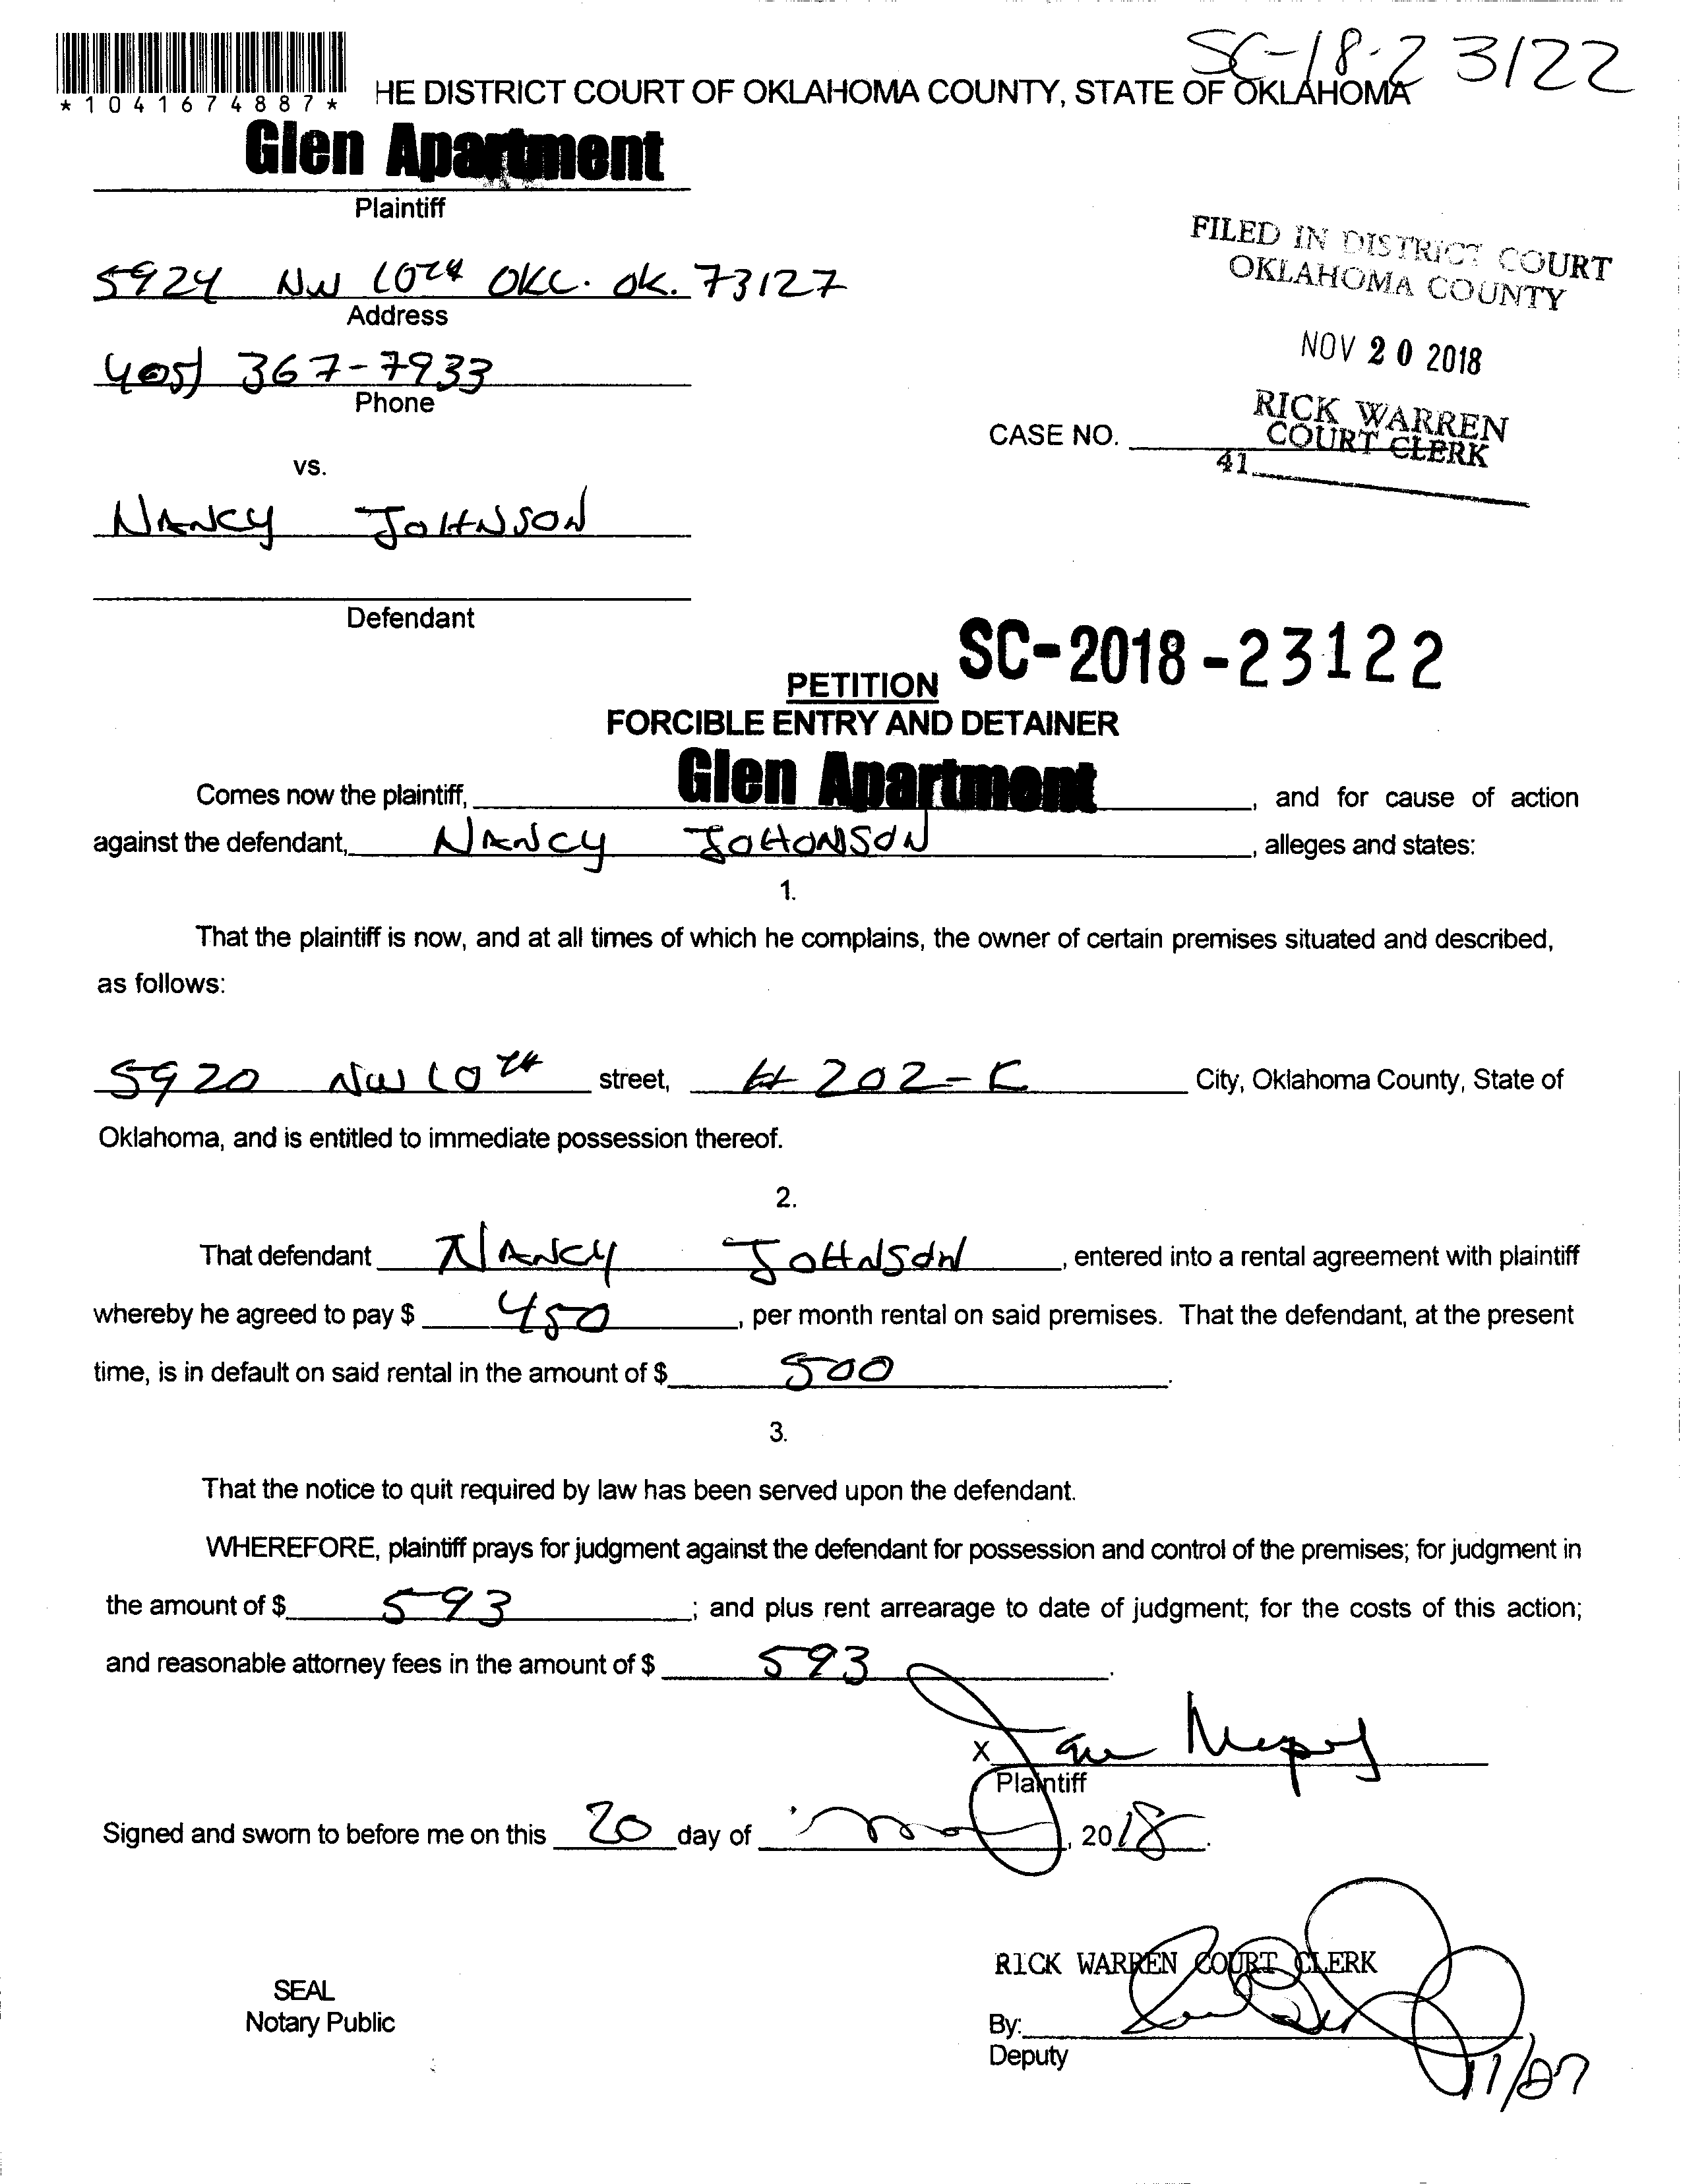 SC-18-23122
*1041674887*
HE DISTRICT COURT OF OKLAHOMA COUNTY, STATE OF OKLAHOMA
Glen Apartment
Plaintiff
5924 NW 10TH OKC. OK. 73127
Address
405) 367-7933
Phone
FILED IN DISTRICT COURT
OKLAHOMA COUNTY
NOV 20 2018
RICK WARREN
COURT CLERK
41
CASE NO.
vs.
NANCY JOHNSON
Defendant
SC-2018-23122
PETITION
FORCIBLE ENTRY AND DETAINER
Comes now the plaintiff, Glen Apartment, and for cause of action
against the defendant, NANCY JOHONSON, alleges and states:
1.
That the plaintiff is now, and at all times of which he complains, the owner of certain premises situated and described,
as follows:
5920 NW 10TH street, # 202-K City, Oklahoma County, State of
Oklahoma, and is entitled to immediate possession thereof.
2.
That defendant NANCY JOHNSON, entered into a rental agreement with plaintiff
whereby he agreed to pay $ 450, per month rental on said premises. That the defendant, at the present
time, is in default on said rental in the amount of $ 500.
3.
That the notice to quit required by law has been served upon the defendant.
WHEREFORE, plaintiff prays for judgment against the defendant for possession and control of the premises; for judgment in
the amount of $ 593; and plus rent arrearage to date of judgment; for the costs of this action;
and reasonable attorney fees in the amount of $ 593.
X
Plaintiff
Signed and sworn to before me on this 20 day of , 2018.
RICK WARREN COURT CLERK
SEAL
Notary Public
By:
Deputy
11/27